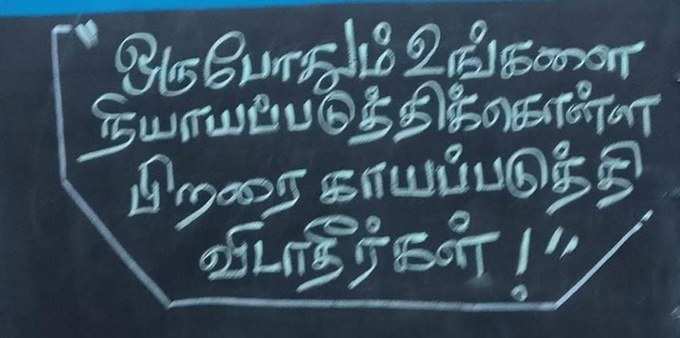 "ஒருபோதும் உங்களை
நியாயப்படுத்திக்கொள்ள
பிறரை காயப்படுத்தி
விடாதீர்கள் !"